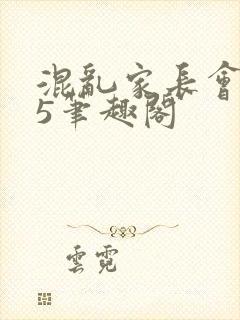 混亂家長會
5筆趣閣
雲霓